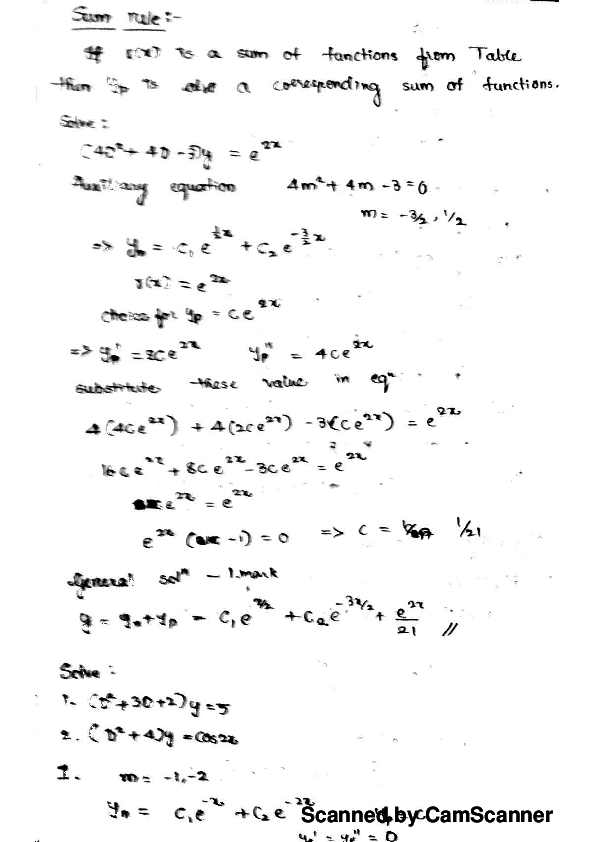 Sum rule :-
If r(x) is a sum of functions from Table
then yp is also a corresponding sum of functions.
Solve :
(4D² + 4D - 3)y = e^{2x}
Auxiliary equation 4m² + 4m - 3 = 0
m = -3/2, 1/2
=> yn = c₁e^{½x} + c₂e^{-3/2 x}
r(x) = e^{2x}
choice for yp = ce^{2x}
=> yp' = 2ce^{2x} yp'' = 4ce^{2x}
substitute these value in eqⁿ
4(4ce^{2x}) + 4(2ce^{2x}) - 3(ce^{2x}) = e^{2x}
16ce^{2x} + 8ce^{2x} - 3ce^{2x} = e^{2x}
ce^{2x} = e^{2x}
e^{2x} ( -1) = 0 => c = 1/21
General solⁿ - 1 mark
y = yn + yp = c₁e^{x/2} + c₂e^{-3x/2} + e^{2x}/21 //
Solve :
1. (D² + 3D + 2)y = 5
2. (D² + 4)y = cos2x
1. m = -1, -2
yn = c₁e^{-x} + c₂e^{-2x}
Scanned by CamScanner
yp' = yp'' = 0